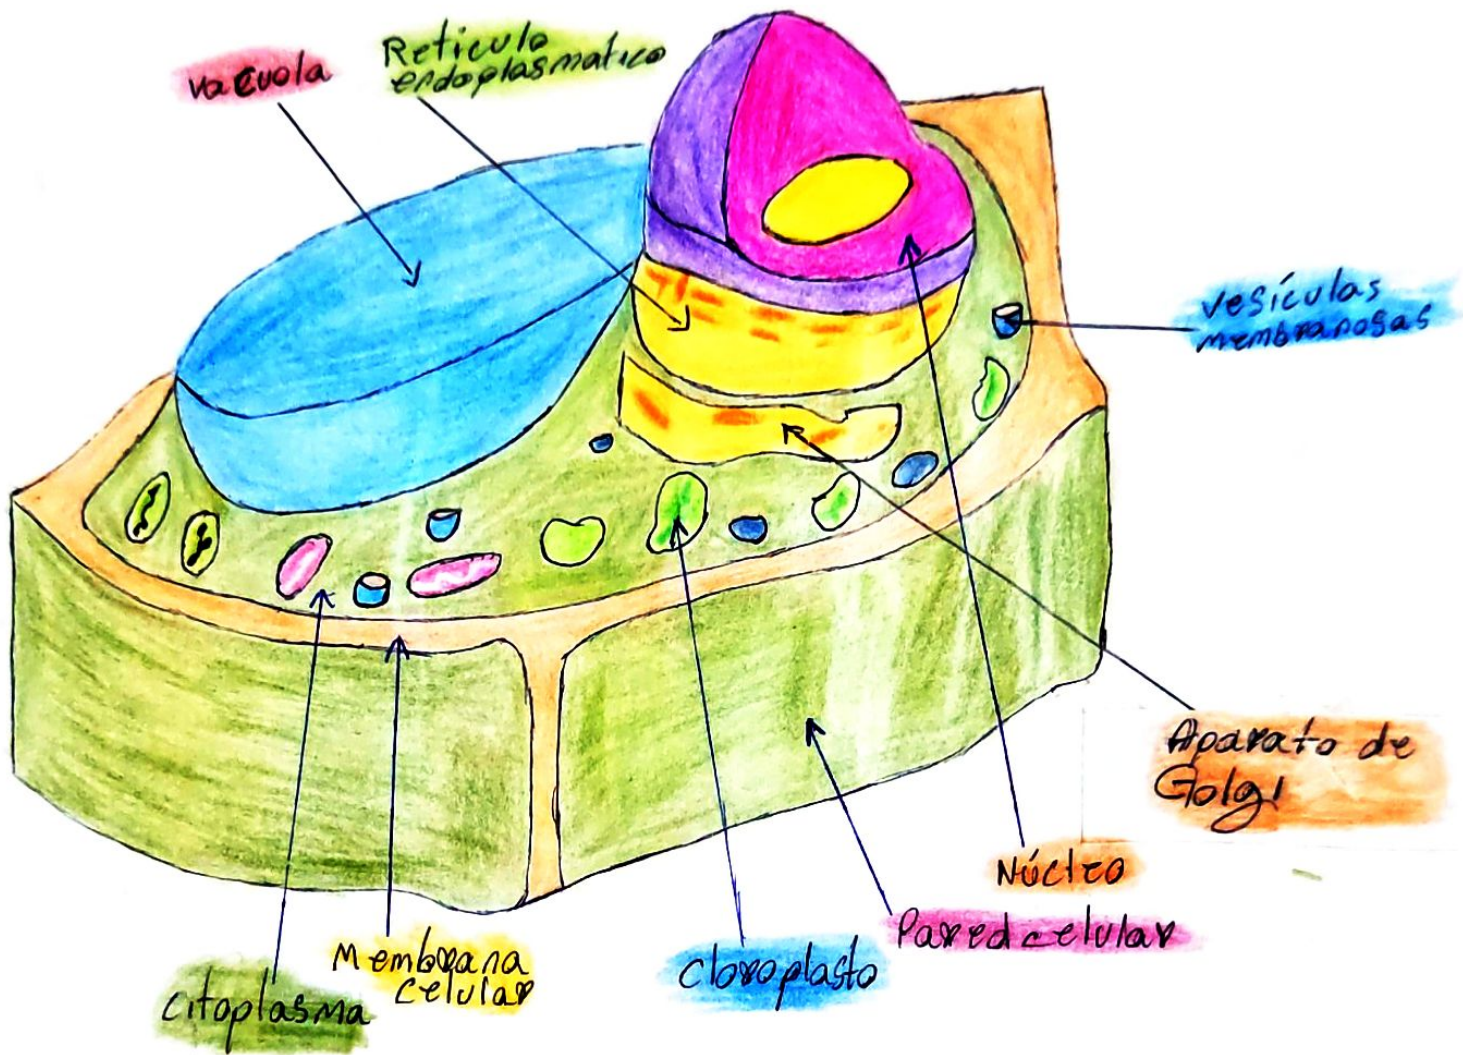 vacuola
Reticulo
endoplasmatico
vesículas
membranosas
Aparato de
Golgi
Núcleo
Pared celular
cloroplasto
Membrana
celular
citoplasma